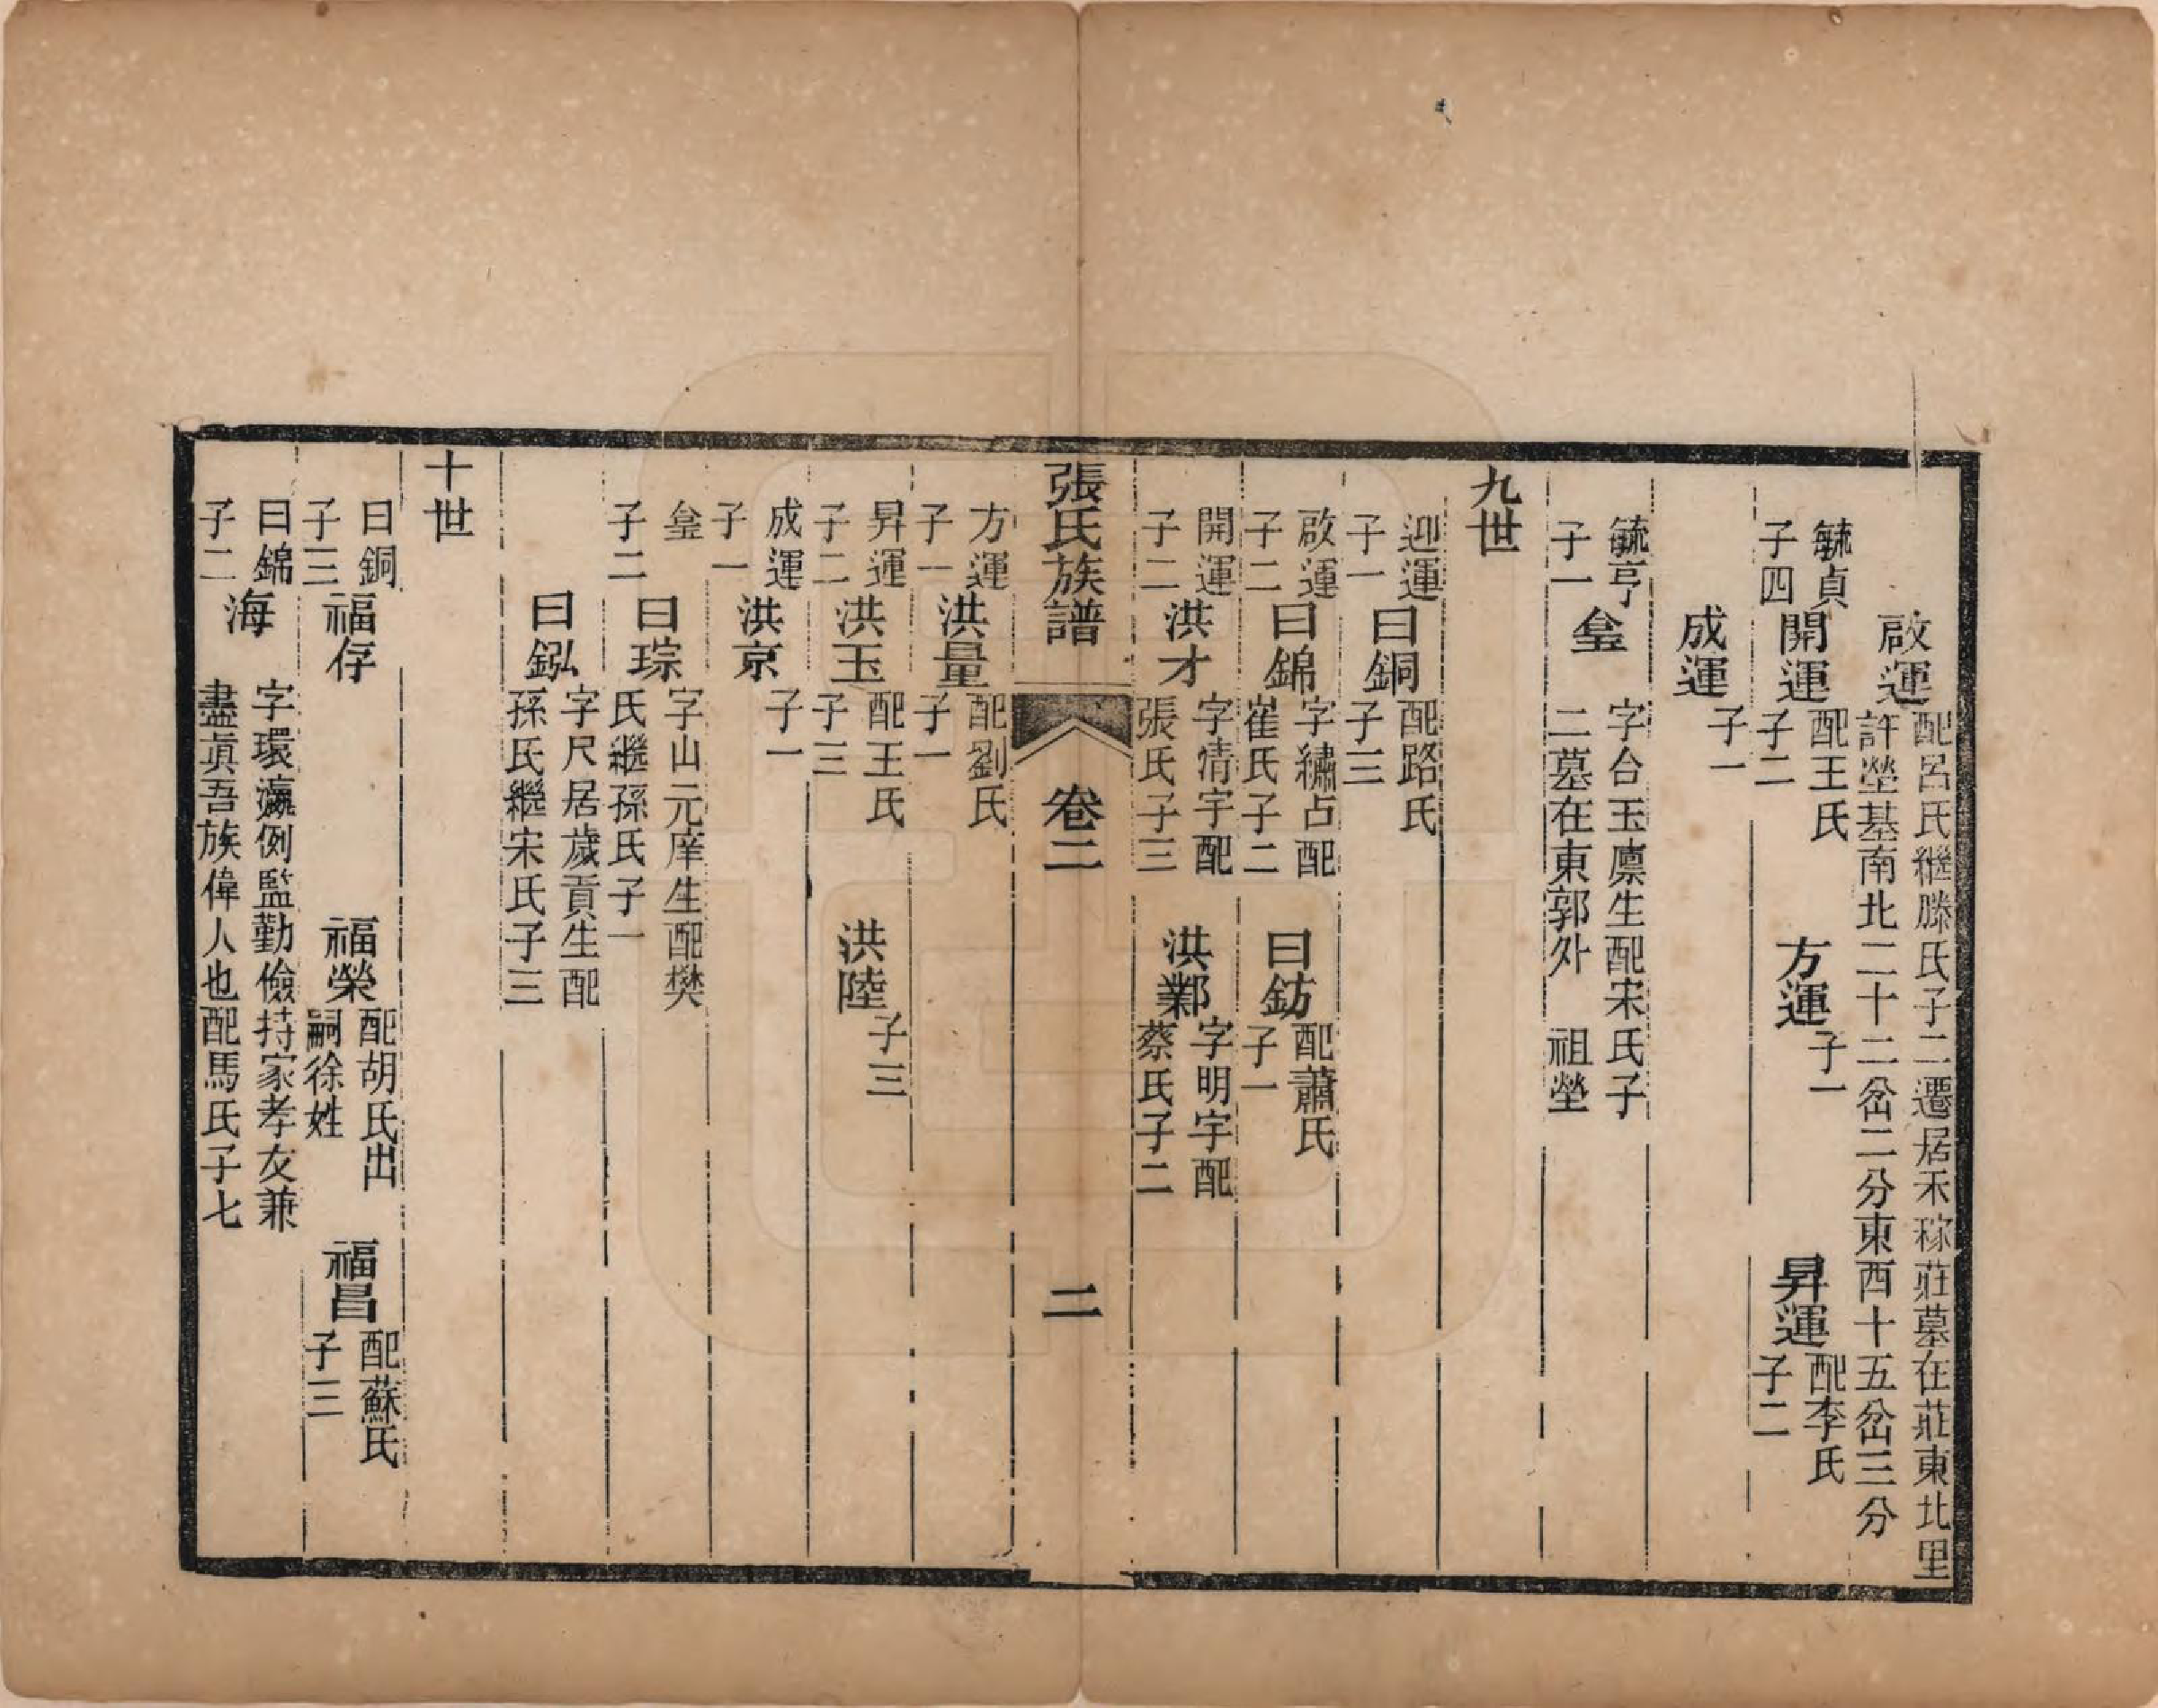 啟運 配呂氏繼滕氏子二遷居禾稼莊墓在莊東北里
許塋基南北二十二畚二分東西十五畚三分
毓貞子四 開運 配王氏子二 方運 子一 昇運 配李氏子二
成運 子一
毓亨子一 皇 字台玉廩生配宋氏子二墓在東郭外 祖塋
九世
迎運子一 曰銅 配路氏子三
啟運子二 曰錦 字繡占配崔氏子二 曰鈁 配蕭氏子一
開運子二 洪才 字情宇配張氏子三 洪鄴 字明宇配蔡氏子二
張氏族譜 卷二 二
方運子一 洪量 配劉氏子一
昇運子二 洪玉 配王氏子三 洪陸 子三
成運子一 洪京 子一
皇子二 曰琮 字山元庠生配樊氏繼孫氏子一
曰鈲 字尺居歲貢生配孫氏繼宋氏子三
十世
曰銅子三 福存 福榮 配胡氏出嗣徐姓 福昌 配蘇氏子三
曰錦子二 海 字環瀛例監勤儉持家孝友兼
盡真吾族偉人也配馬氏子七